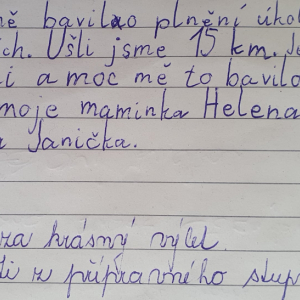 ně bavilo plnění úkol
ich. Ušli jsme 15 km. Je
i a moc mě to bavilo
moje maminka Helena
a Janička.
za krásný výlet.
ti z přípravného stup